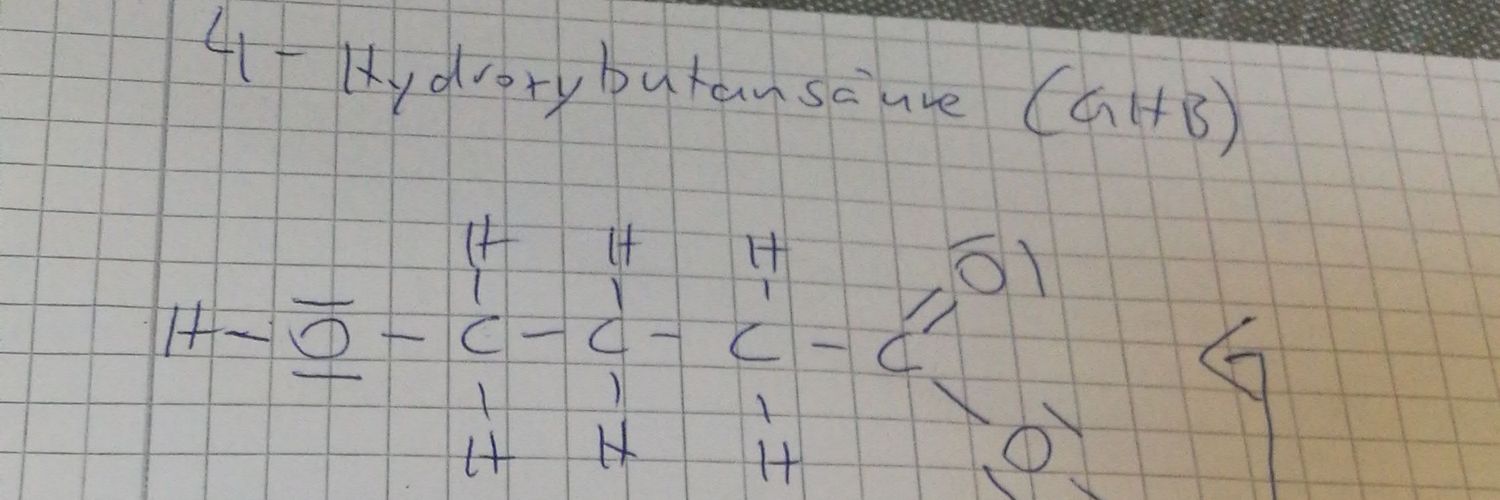 4-Hydroxybutansäure (GHB)
H H H O
H-O-C-C-C-C
H H H O